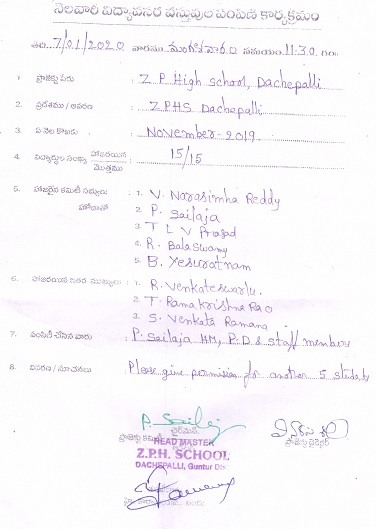 నెలవారీ విద్యావసర వస్తువుల పంపిణీ కార్యక్రమం
తేది. 7/01/2020 వారము మంగళవారం సమయం 11.30 గం.
1. ప్రాజెక్టు పేరు : Z P High School, Dachepalli
2. ప్రదేశము / ఆవరణ : ZPHS Dachepalli
3. ఏ నెల కొరకు : November-2019.
4. విద్యార్థుల సంఖ్య హాజరయిన / మొత్తము : 15/15
5. హాజరైన కమిటీ సభ్యులు : 1. V. Narasimha Reddy
హోదాతో 2. P. Sailaja
3 T L V Prasad
4. R. Balaswamy
5. B. Yesuratnam
6. హాజరయిన ఇతర ముఖ్యులు : 1. R. Venkateswarlu.
2. T. Ramakrishna Rao
3. S. Venkata Ramana
7. పంపిణీ చేసిన వారు : P. Sailaja HM, P.D & Staff members
8. వివరణ / సూచనలు : Please give permission for another 5 students
P. Sailaja
చైర్‌మెన్
ప్రాజెక్టు కమిటీ ప్రాజెక్టు డైరెక్టర్
HEAD MASTER
Z.P.H. SCHOOL
DACHEPALLI, Guntur Dt